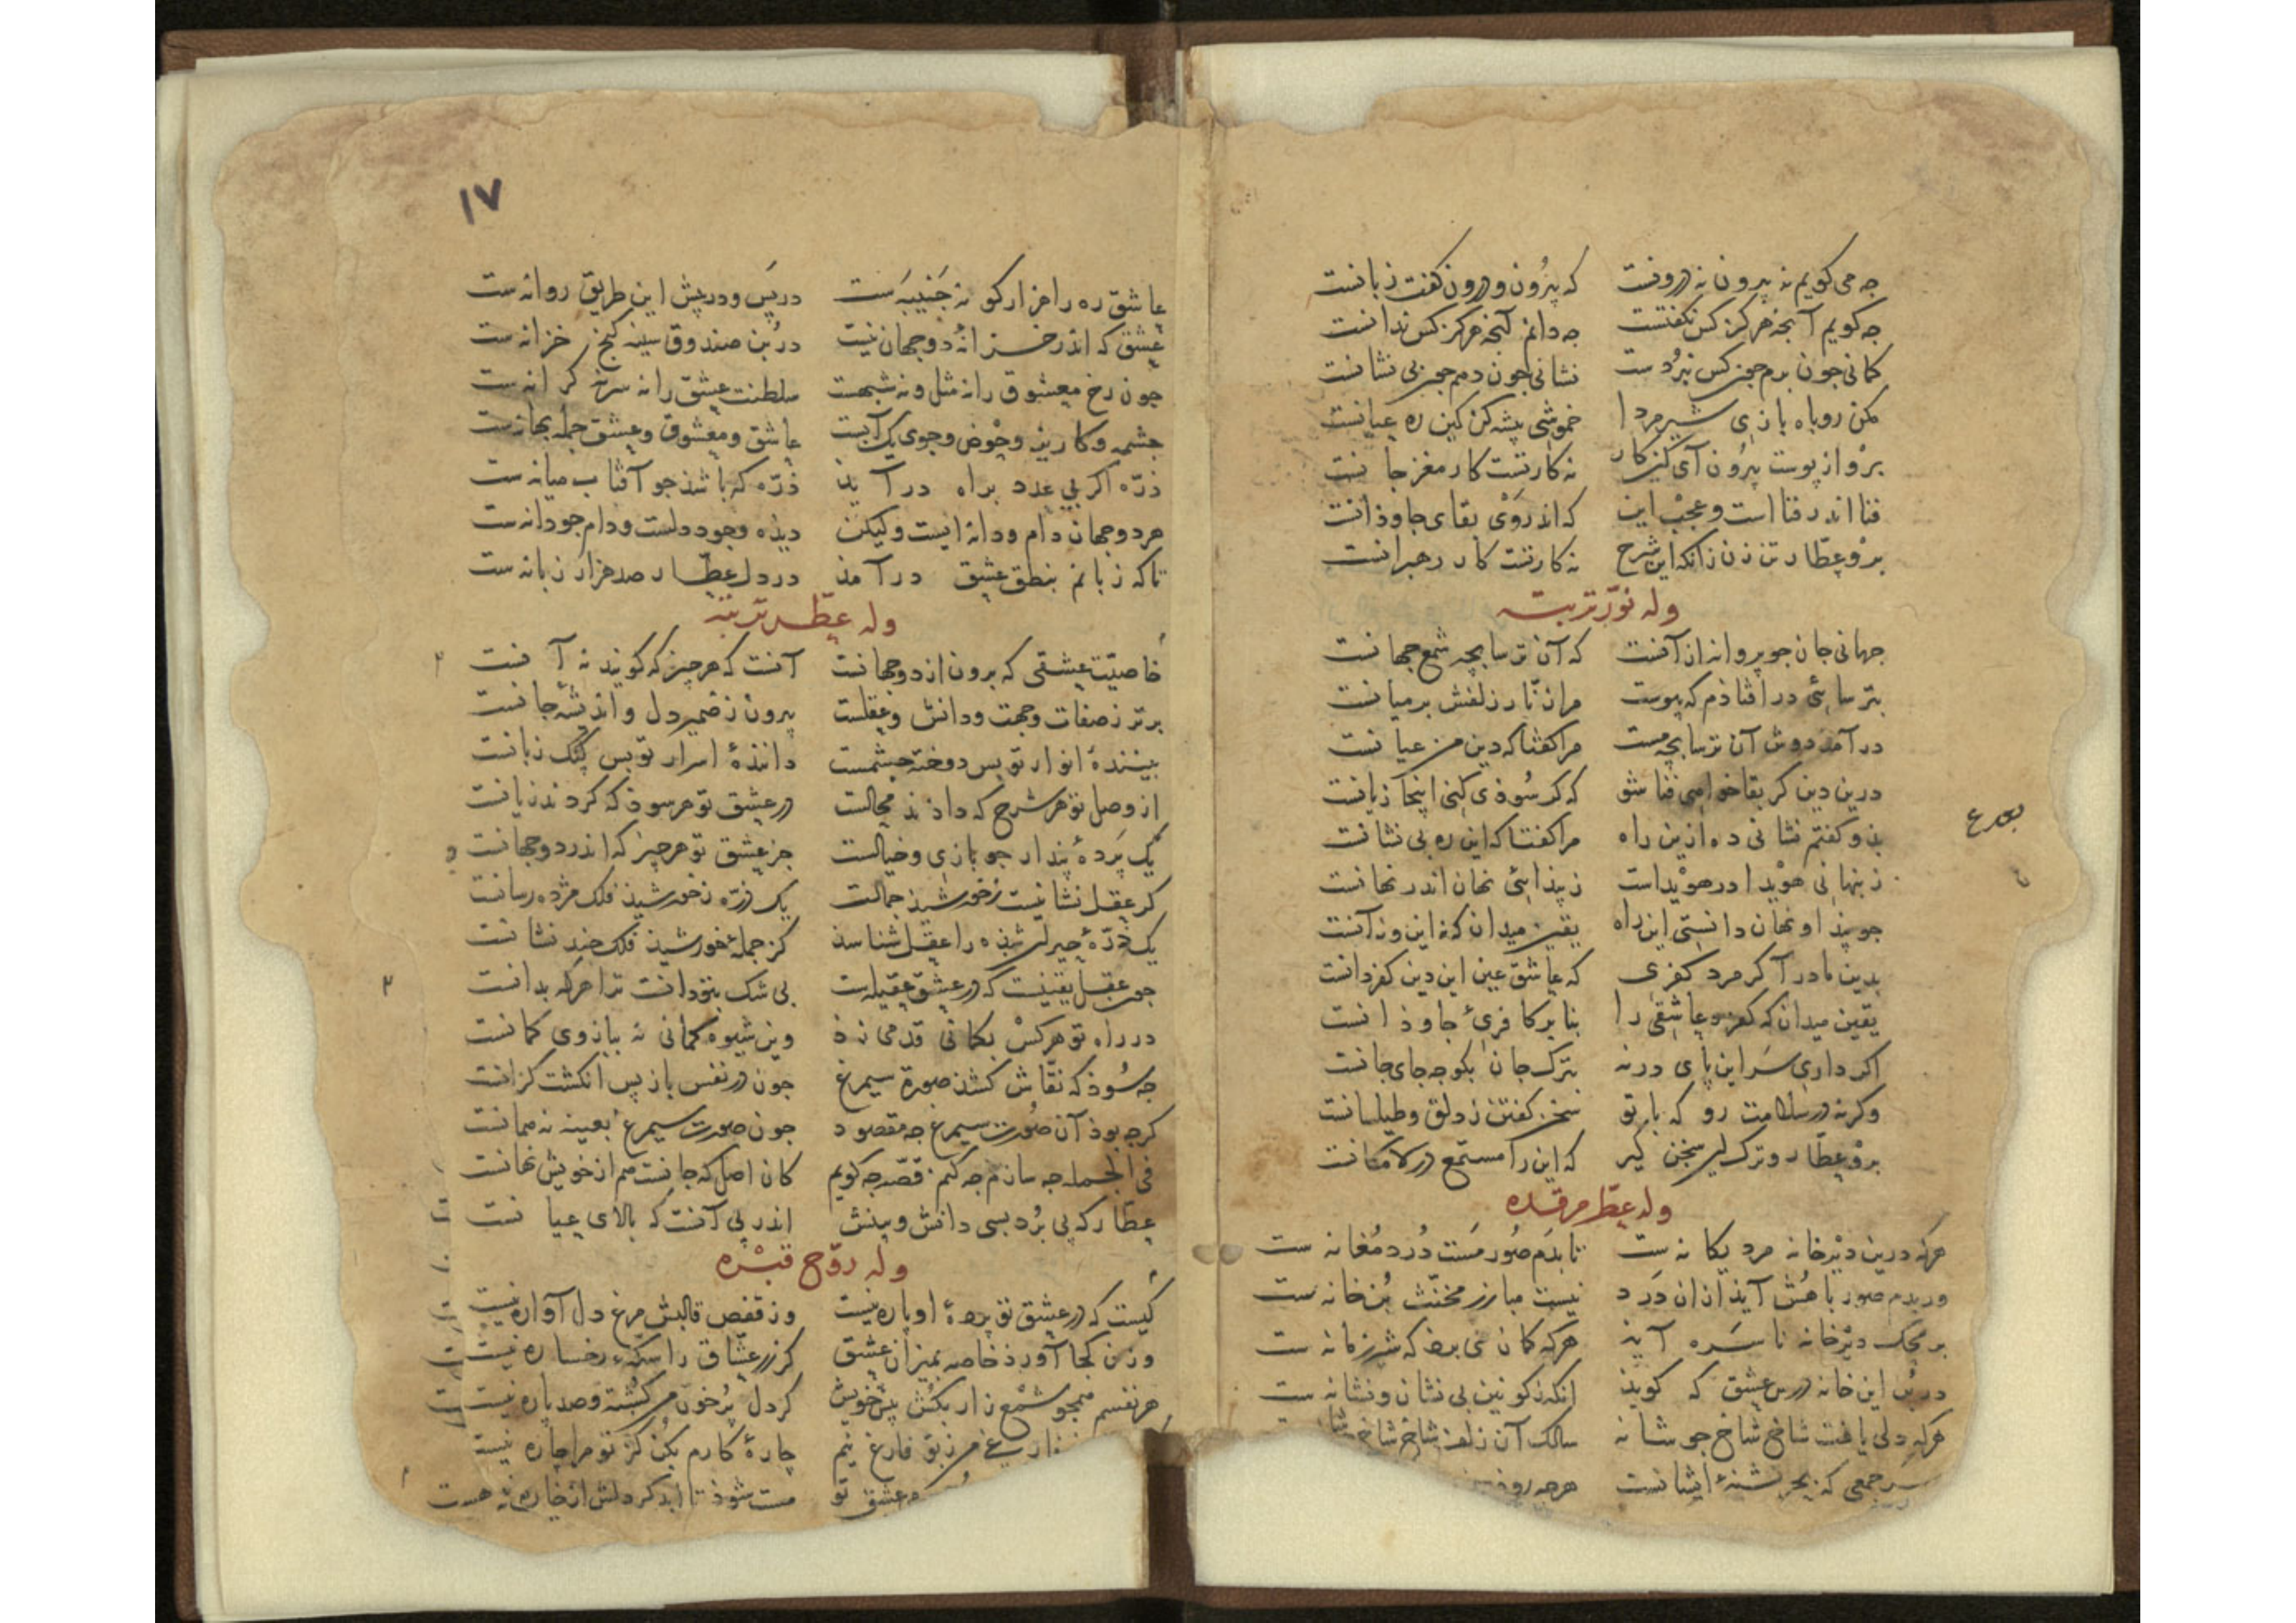 جه می کویم نه بیرون نه درونست که بیرون و درون کفت زبانست
جه کویم آنجه هرکز کس نکفتست جه دانم آنجه هرکز کس ندانست
کمانی جون برم جون کس نبردست نشانی جون دهم جون بی نشانست
مکن روباه بازی شیر مردا خموشی پیشه کن کین ره عیانست
برو از پوست بیرون آی کین کار نه کار تست کار مغز جانست
فنا اندر فنا است و عجب این که اندر وی بقای جاوذانست
برو عطار تن زن زانکه این شرح نه کار تست کار رهبرانست
وله نوّر تربته
جهانی جان جو پروانه از آنست که آن ترسا بچه شمع جهانست
بترسائی در افتاذم که پیوست مرا زنّار زلفش بر میانست
در آمد دوش آن ترسا بچه مست مرا کفتا که دین من عیانست
درین دین کر بقا خواهی فنا شو که کر سوذی کنی اینجا زیانست
بذو کفتم نشانی ده ازین راه مرا کفتا که این ره بی نشانست
ز پنهانی هویدا در هویداست ز پیذائی نهان اندر نهانست
جو پیذا و نهان دانستی این راه یقین میدان که نه این و نه آنست
بدین ما در آ کر مرد کفری که عاشق عین این دین کفر دانست
یقین میدان که کفر و عاشقی را بنا بر کافریٔ جاوذانست
اکر داری سر این پای در نه بترک جان بکو جه جای جانست
وکرنه در سلامت رو که با تو سخن کفتن ز دلق و طیلسانست
برو عطار و ترک این سخن کیر که این را مستمع در لامکانست
وله عطّر مرقده
هرکه درین دیرخانه مرد یکانه ست تا بدم صور مست درد مغانه ست
ور بدم صور باهش آیذ ازان درد نیست مبارز مخنّث بن خانه ست
بر محک دیرخانه ناسره آیذ هرکه کمان می برد که شیر زمانه ست
در بن این خانه درس عشق که کویذ انکه ز کونین بی نشان و نشانه ست
هرکه دلی یافت شاخ شاخ جو شانه سالک آن زلف شاخ شاخ
جمعی که بحر تشنهٔ ایشانست هرجه
١٧
عاشق ره را هزار کو نه جنیبه ست در پس و در پیش این طریق روانه ست
عشق که اندر خزانهٔ دو جهان نیست در بن صندوق سینه کنج خزانه ست
جون رخ معشوق را نه مثل و نه شبهست سلطنت عشق را نه سر نه کرانه ست
جشمه و کاریز و حوض و جوی یک آبست عاشق و معشوق و عشق جمله بهانه ست
ذرّه اکر بی عدد براه در آیذ ذرّه که باشذ جو آفتاب میانه ست
هر دو جهان دام و دانه ایست ولیکن دیذه وجود دلست و دام جو دانه ست
تا که زبانم بنطق عشق در آمذ در دل عطار صد هزار زبانه ست
وله عطّر تربته
خاصیّت عشقی که برون از دو جهانست آنست که هرجیز که کویند نه آنست
برتر ز صفات و جهت و دانش و عقلست بیرون ز ضمیر دل و اندیشهٔ جانست
بینندهٔ انوار تو بس دوخته جشمست دانندهٔ اسرار تو بس کنک زبانست
از وصل تو هر شرح که داذند محالست در عشق تو هر سوذ که کردند زیانست
یک پردهٔ پندار جو بازی و خیالست جز عشق تو هرجیز که اندر دو جهانست
کر عقل نشانیست ز خورشیذ جمالت یک ذرّه ز خورشیذ فلک مژده رسانست
یک ذرّهٔ حیران شذه را عقل شناسذ کز جملهٔ خورشیذ فلک جند نشانست
جون عقل یقینست که در عشق عقیله ست بی شک بتو دانست ترا هرکه بدانست
در راه تو هرکس بکمانی قدمی زذ وین شیوه کمانی نه ببازوی کمانست
جه سوذ که نقّاش کشذ صورة سیمرغ جون در نفس بازپس انکشت کزانست
کرجه بوذ آن صورت سیمرغ جه مقصود جون صورت سیمرغ بعینه نه همانست
فی الجمله جه سازم جه کنم قصّه جه کویم کان اصل که جانست هم از خویش نهانست
عطار که پی برد بسی دانش و بینش اندر پی آنست که بالای عیانست
وله روّح قبره
کیست که در عشق تو پردهٔ او پاره نیست وز قفص قالبش مرغ دل آواره نیست
وزن کجا آورذ خاصه بمیزان عشق کر زر عشّاق را سکّهٔ رخساره نیست
هر نفسم همجو شمع زار بکش پیش خویش کر دل پر خون من کشته و صد پاره نیست
فارغ نیم جارهٔ کارم بکن کز تو مرا جاره نیست
عشق تو مست شوذ تا ابد کر دلش از خاره نیست